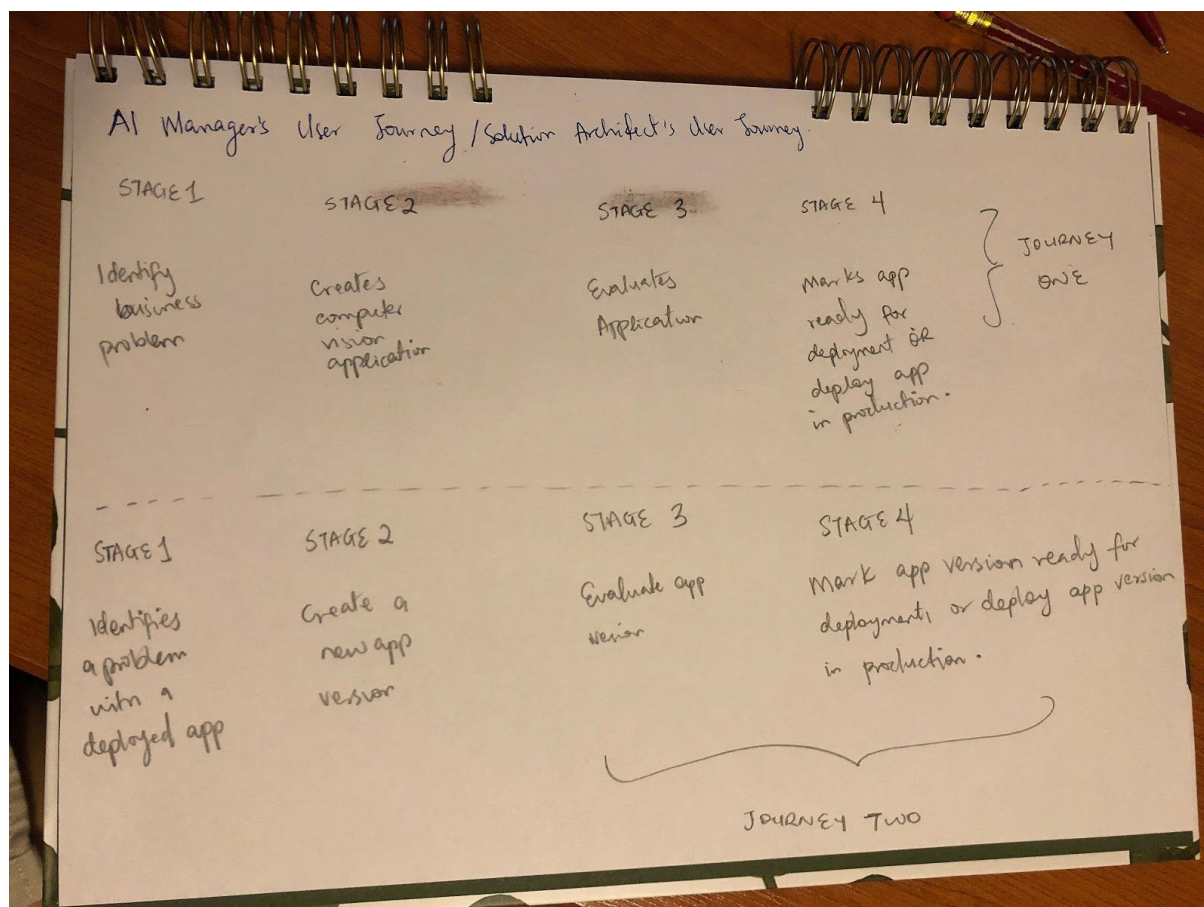 AI Manager's User Journey / Solution Architect's User Journey.
STAGE 1
Identify
business
problem
STAGE 2
Creates
computer
vision
application
STAGE 3
Evaluates
Application
STAGE 4
Marks app
ready for
deployment OR
deploy app
in production.
JOURNEY
ONE
STAGE 1
Identifies
a problem
with a
deployed app
STAGE 2
Create a
new app
version
STAGE 3
Evaluate app
version
STAGE 4
Mark app version ready for
deployment, or deploy app version
in production.
JOURNEY TWO